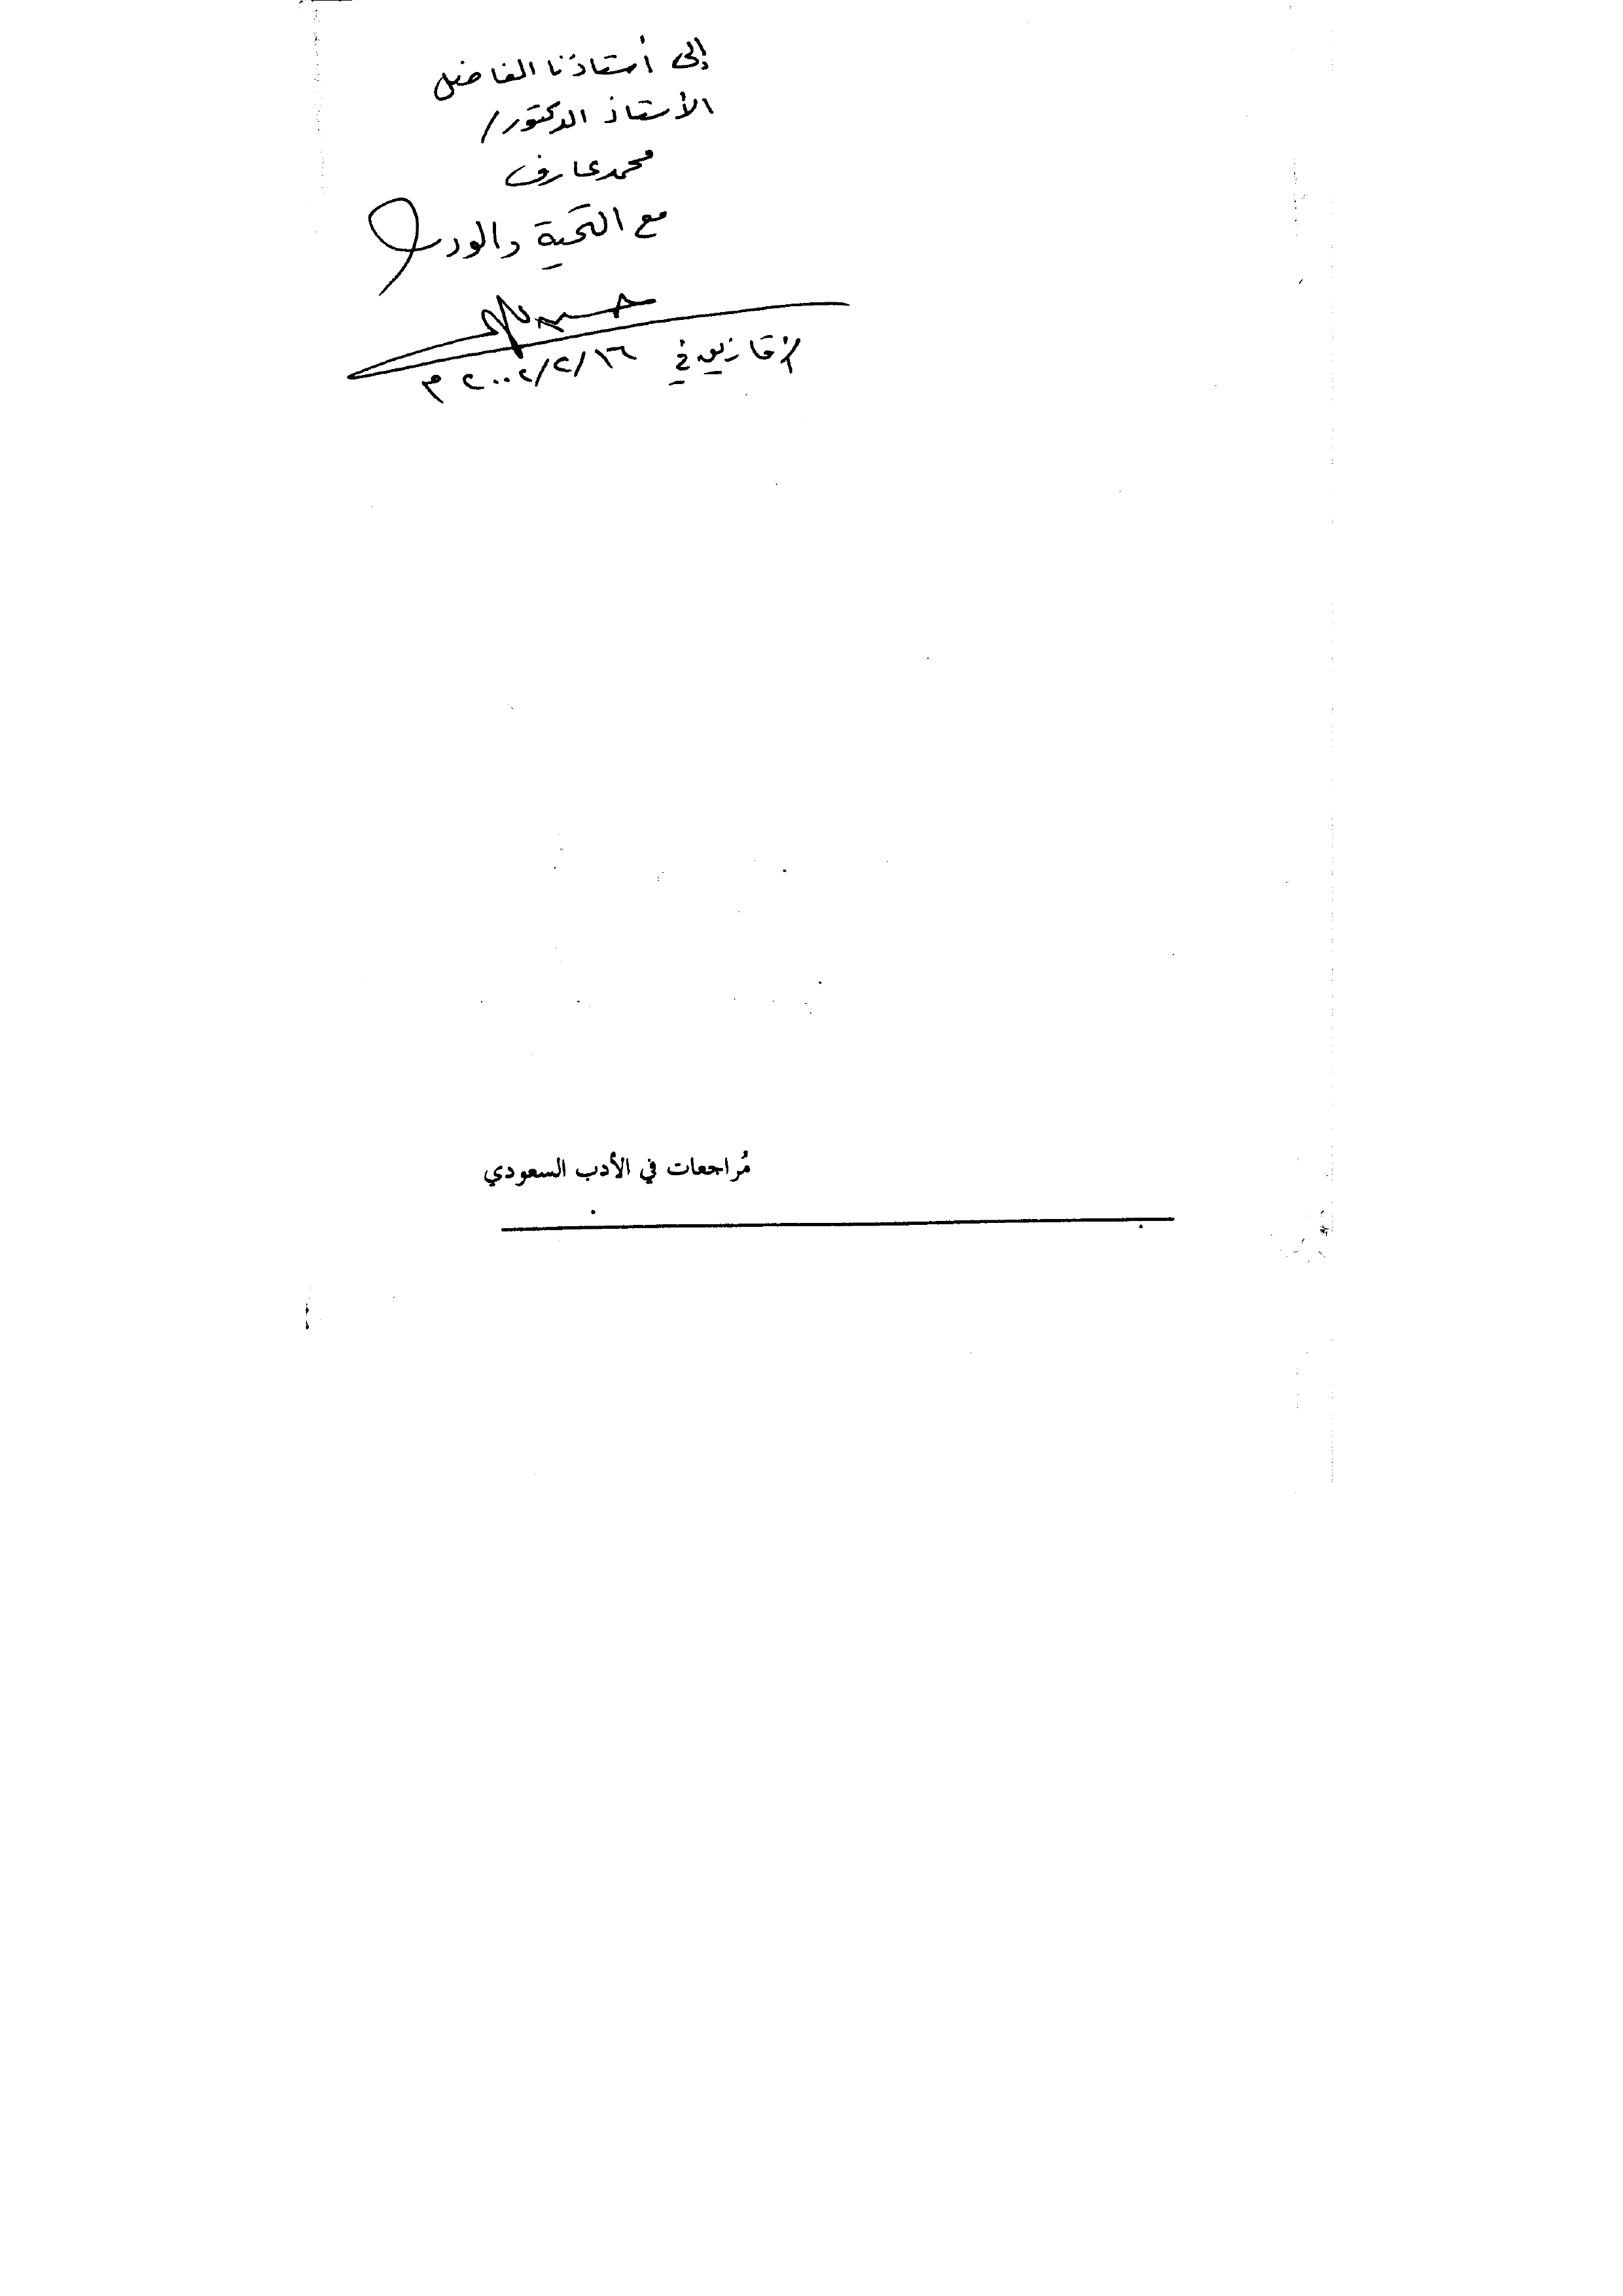 إلى أستاذنا الفاضل
الأستاذ الدكتور/
محمد عارف
مع التحية والود
الزقازيق في ١٦/٢/٢٠٠٢ م
مُراجعات في الأدب السعودي